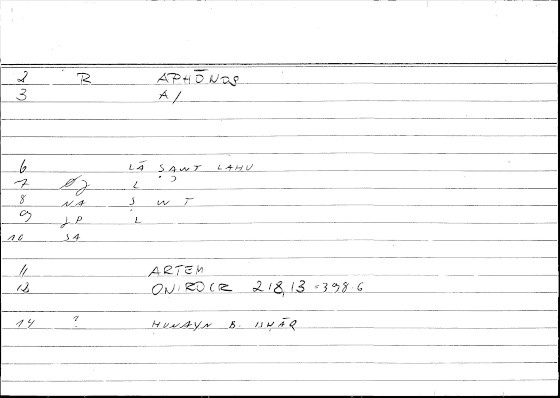 2 R APHŌNOS
3 A/
6 LĀ ṢAWT LAHU
7 L
8 NA Ṣ W T
9 JP L
10 SA
11 ARTEM
12 ONIROCR 218,13 = 398.6
14 ? ḤUNAYN B. ISḤĀQ